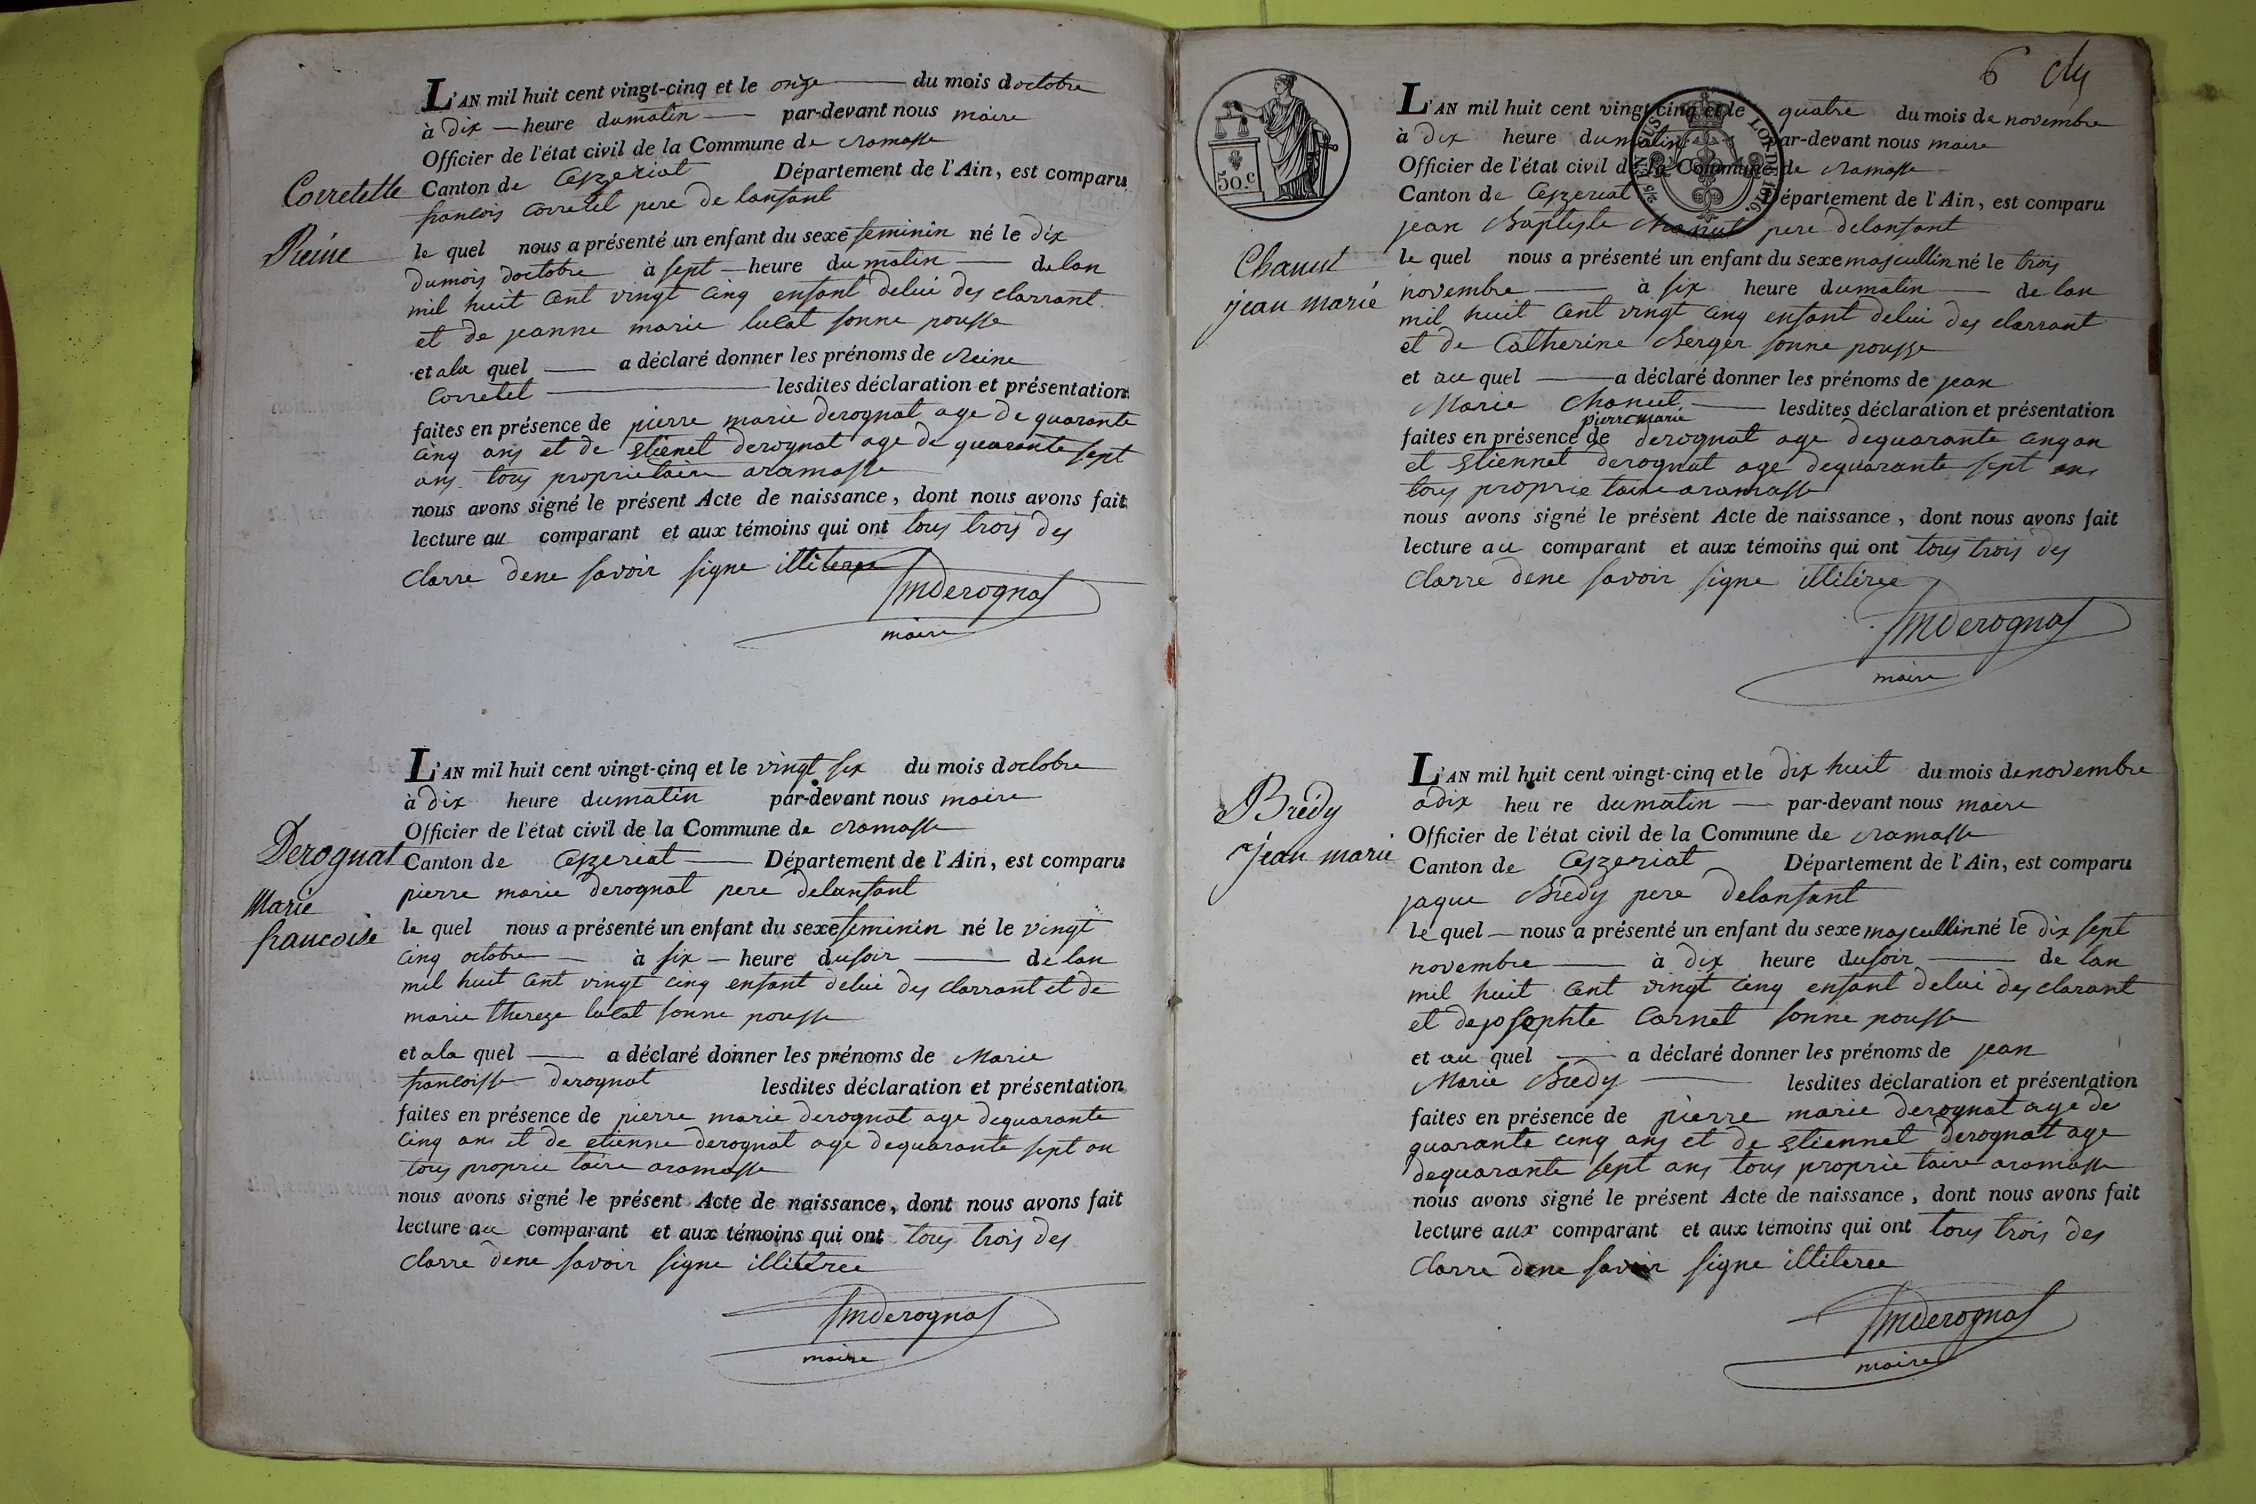 L'AN mil huit cent vingt-cinq et le onze du mois doctobre
à dix heure dumatin par-devant nous maire
Officier de l'état civil de la Commune de cramasse
Corretelle
Canton de Ceyzeriat Département de l'Ain, est comparu
francois corretel pere de lanfant
Reine
le quel nous a présenté un enfant du sexe feminin né le dix
dumois doctobre à sept heure du matin de lan
mil huit cent vingt cinq enfant delui des clarrant
et de jeanne marie lucat sonne pousse
et ala quel a déclaré donner les prénoms de Reine
Corretel lesdites déclaration et présentation
faites en présence de pierre marie derognat age de quarante
cinq ans et de Etienet derognat age de quarante sept
ans tous proprietaire aramasse
nous avons signé le présent Acte de naissance, dont nous avons fait
lecture au comparant et aux témoins qui ont tous trois des
clarre dene savoir signe illiteree
pmderognat
maire
L'AN mil huit cent vingt-cinq et le vingt six du mois doctobre
à dix heure dumatin par-devant nous maire
Officier de l'état civil de la Commune de cramasse
Derognat
Canton de Ceyzeriat Département de l'Ain, est comparu
pierre marie derognat pere delanfant
Marie
francoise
le quel nous a présenté un enfant du sexe feminin né le vingt
cinq octobre à six heure dusoir de lan
mil huit cent vingt cinq enfant delui des clarrant et de
marie thereze lucat sonne pousse
et ala quel a déclaré donner les prénoms de Marie
francoisse derognat lesdites déclaration et présentation
faites en présence de pierre marie derognat age dequarante
cinq ans et de etienne derognat age dequarante sept an
tous proprie taire aramasse
nous avons signé le présent Acte de naissance, dont nous avons fait
lecture au comparant et aux témoins qui ont tous trois des
clarre dene savoir signe illiteree
pmderognat
maire
6
50.c
L'AN mil huit cent vingt-cinq et le quatre du mois de novembre
à dix heure dumatin par-devant nous maire
Officier de l'état civil de la Commune de cramasse
Canton de Ceyzeriat Département de l'Ain, est comparu
LOI DE 1816.
jean Baptiste chanut pere delanfant
Chanut
jean marié
le quel nous a présenté un enfant du sexe mascullin né le trois
novembre à six heure dumatin de lan
mil huit cent vingt cinq enfant delui des clarrant
et de Catherine Berger sonne pousse
et au quel a déclaré donner les prénoms de jean
Marie chanut lesdites déclaration et présentation
pierre marie
faites en présence de derognat age dequarante cinq an
et Etiennet derognat age dequarante sept ans
tous proprie taire aramasse
nous avons signé le présent Acte de naissance, dont nous avons fait
lecture au comparant et aux témoins qui ont tous trois des
clarre dene savoir signe illiteree
pmderognat
maire
L'AN mil huit cent vingt-cinq et le dix huit du mois de novembre
adix heu re dumatin par-devant nous maire
Officier de l'état civil de la Commune de cramasse
Brédy
jean marie
Canton de Ceyzeriat Département de l'Ain, est comparu
jaque Bredy pere delanfant
le quel nous a présenté un enfant du sexe mascullin né le dix sept
novembre à dix heure dusoir de lan
mil huit cent vingt cinq enfant delui des clarant
et dejosophte Carnet sonne pousse
et au quel a déclaré donner les prénoms de jean
Marie Bredy lesdites déclaration et présentation
faites en présence de pierre marie derognat age de
quarante cinq ans et de Etiennet derognatt age
dequarante sept ans tous proprie taire aramasse
nous avons signé le présent Acte de naissance, dont nous avons fait
lecture aux comparant et aux témoins qui ont tous trois des
clarre dene savoir signe illiteree
pmderognat
maire